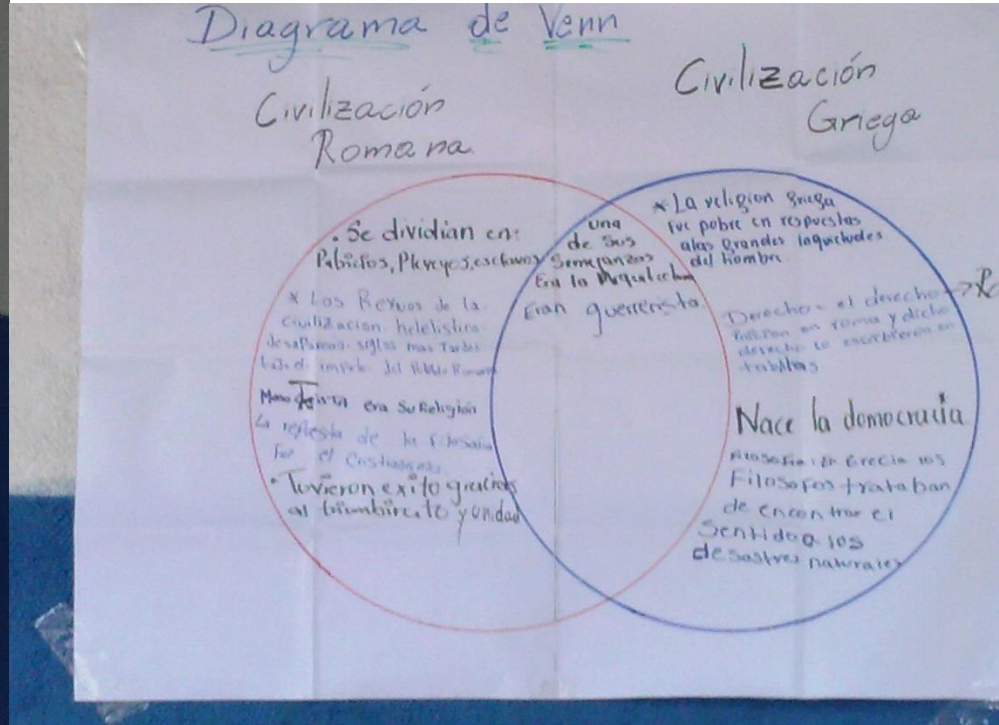 Diagrama de Venn
Civilización
Romana
Civilización
Griega
. Se dividian en:
Patricios, Pleveyos, esclavos
* Los Reynos de la
civilización helelistica
desaparecen siglos mas Tardes
bajo el imperio del Pueblo Romano
Mono Teista era su Religión
La respuesta de la filosofia
fue el Cristianismo
• Tuvieron exito gracias
al triumbirato y unidad
una
de sus
Semejanzas
Era la Arquitectura
Eran guerrerista
* La religion griega
fue pobre en respuestas
alas grandes inquietudes
del hombre
Derecho - el derecho → R
en roma y dicho
derecho lo escribieron en
tablitas
Nace la democracia
Filosofia: En Grecia los
Filosofos trataban
de encontrar el
Sentido a los
desastres naturales